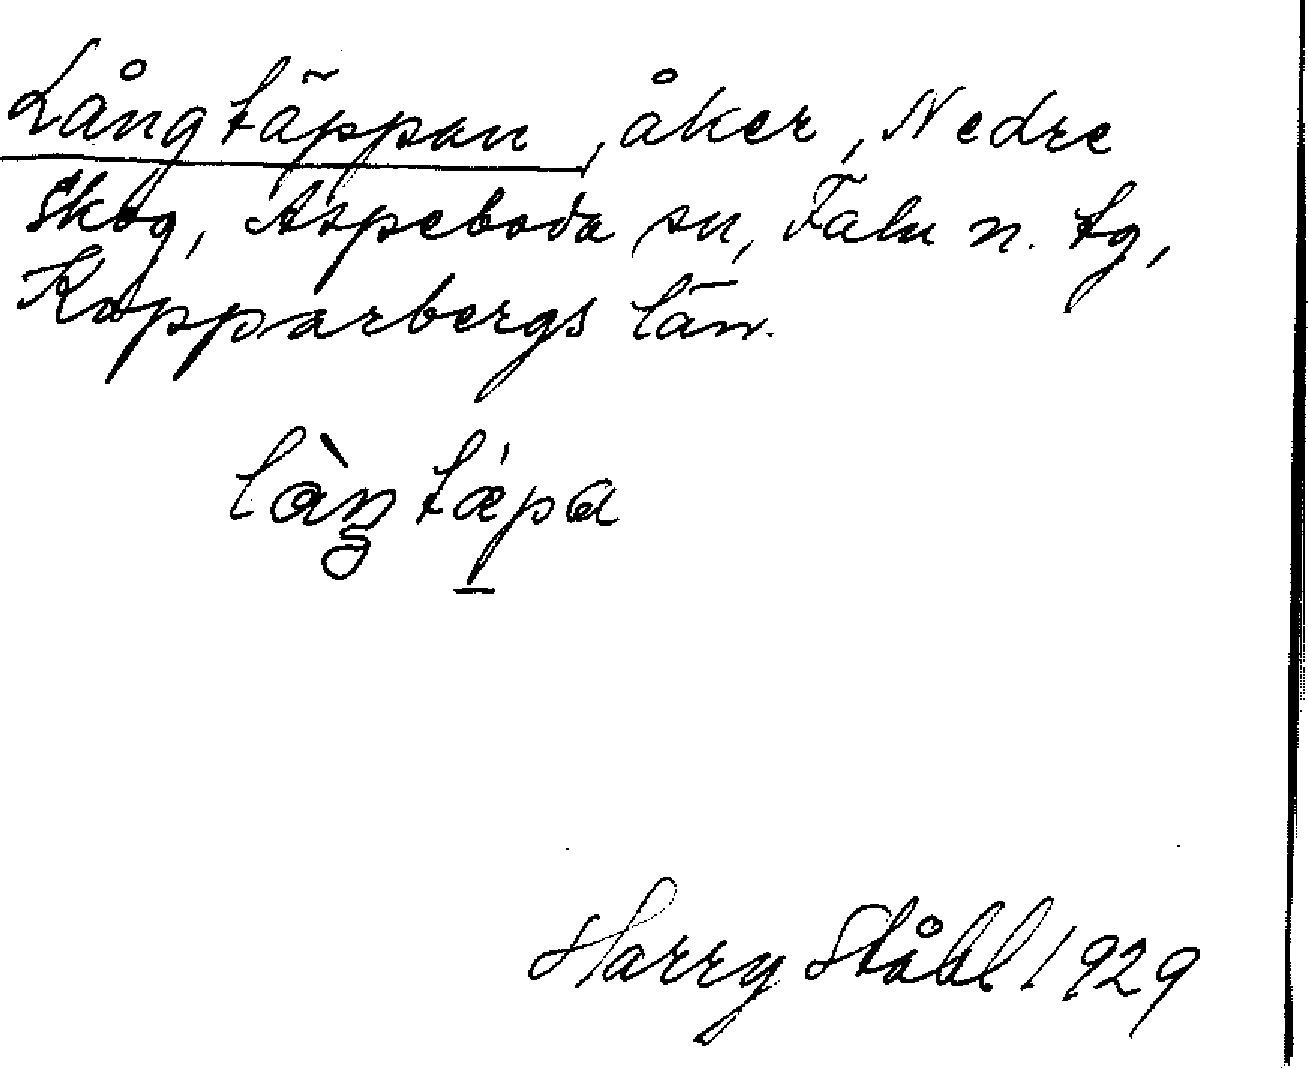 Långtäppan, åker, Nedre
Skog, Aspeboda sn, Falu n. tg,
Kopparbergs län.
làŋtæ̀pa
Harry Ståhl 1929